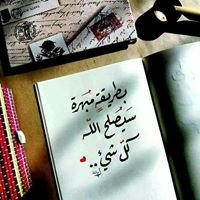 بطريقةٍ مُبهرة
سَيُصلح الله
كلّ شيْ..